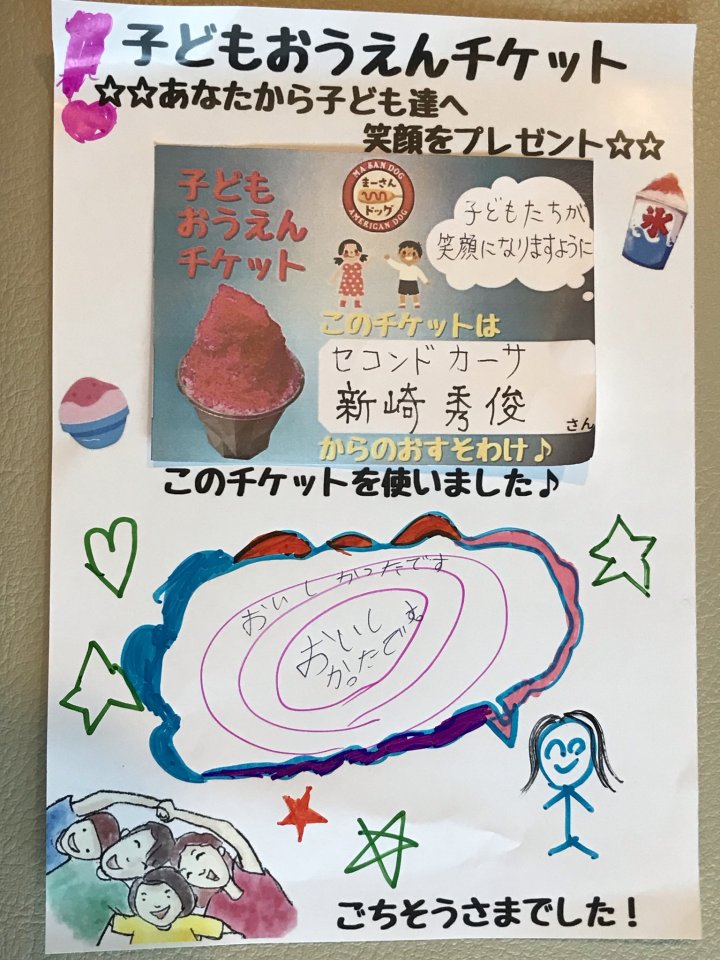 子どもおうえんチケット
☆☆あなたから子ども達へ
笑顔をプレゼント☆☆
子ども
おうえん
チケット
MA SAN DOG
まーさん
ドッグ
AMERICAN DOG
子どもたちが
笑顔になりますように
氷
このチケットは
セコンド カーサ
新崎 秀俊
さん
からのおすそわけ♪
このチケットを使いました♪
おいしかったです
おいし
かったです。
ごちそうさまでした！